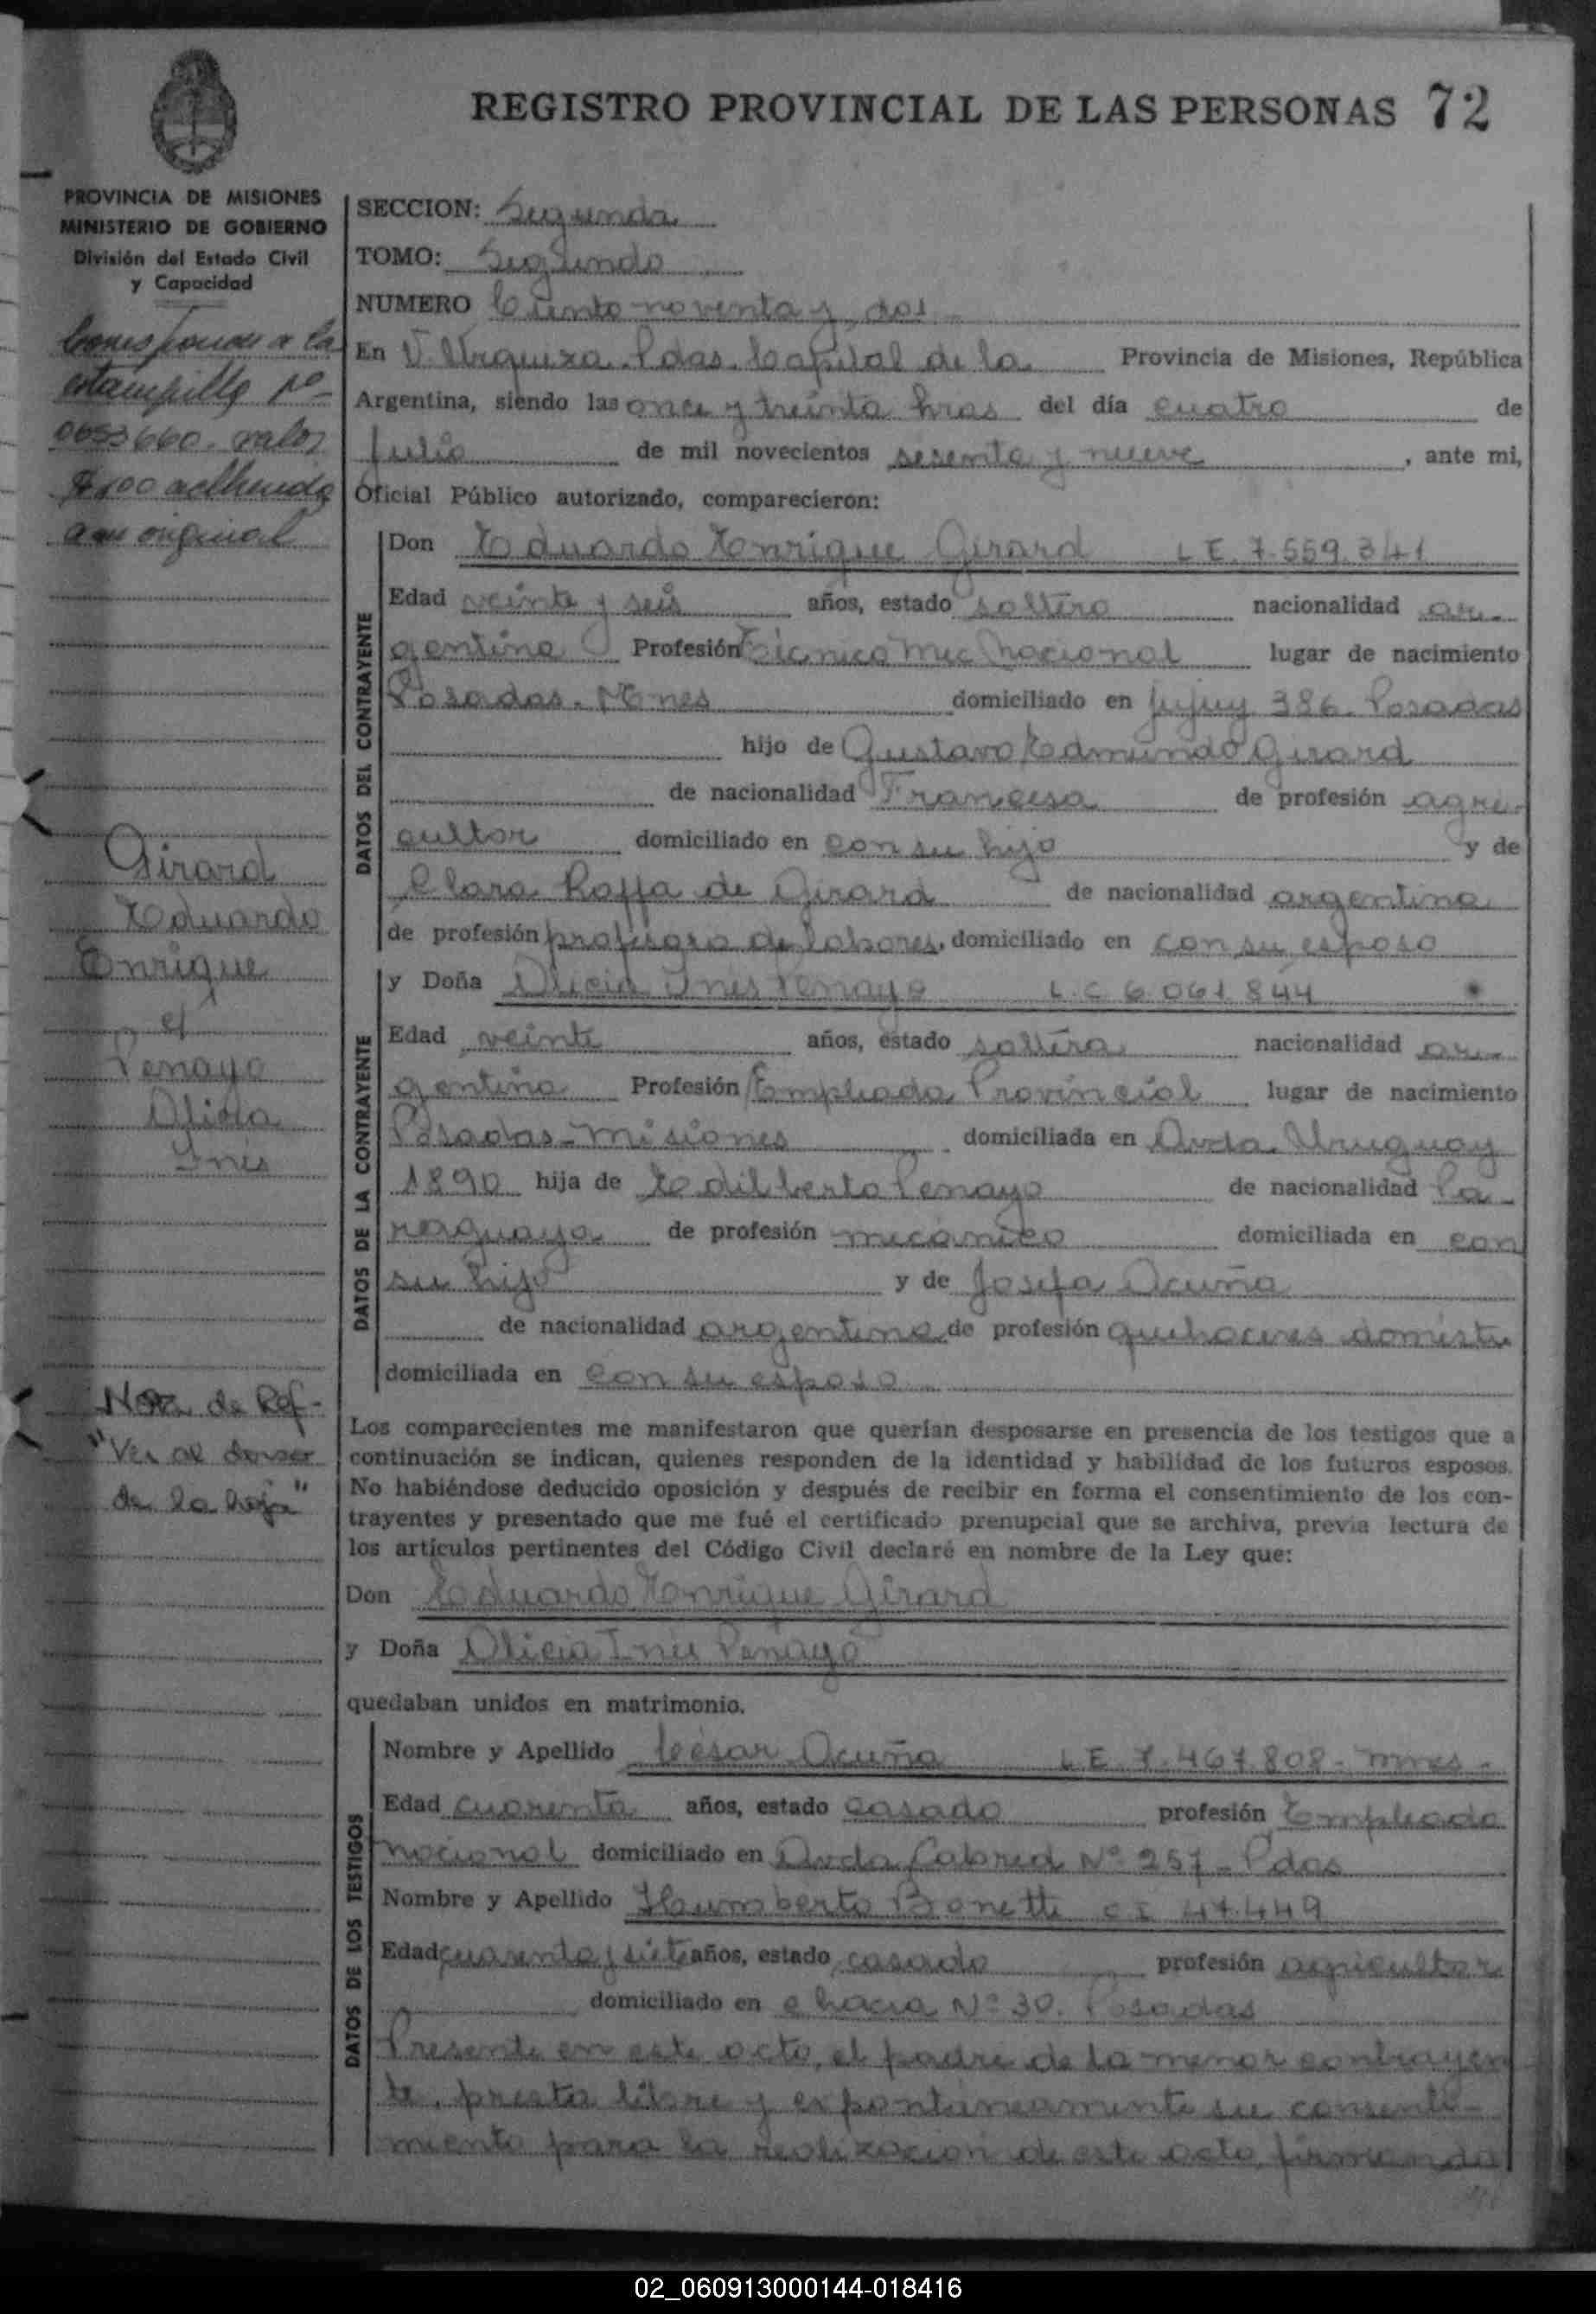 REGISTRO PROVINCIAL DE LAS PERSONAS 72
PROVINCIA DE MISIONES
MINISTERIO DE GOBIERNO
División del Estado Civil
y Capacidad
Corresponde a la
estampilla Nº
0053660. valor
$100 adherida
a su original
Girard
Eduardo
Enrique
c/
Penayo
Alicia
Inés
Nota de Ref-
"Ver al dorso
de la hoja"
SECCION: Segunda
TOMO: Segundo
NUMERO Ciento noventa y dos
En V. Urquiza. Pdas. Capital de la Provincia de Misiones, República
Argentina, siendo las once y treinta hras del día cuatro de
Julio de mil novecientos sesenta y nueve, ante mi,
Oficial Público autorizado, comparecieron:
DATOS DEL CONTRAYENTE
Don Eduardo Enrique Girard L E. 7.559.341
Edad veinte y seis años, estado soltero nacionalidad ar-
gentina Profesión Técnico Mec Nacional lugar de nacimiento
Posadas. Mnes domiciliado en Jujuy 386. Posadas
hijo de Gustavo Edmundo Girard
de nacionalidad Francesa de profesión agri-
cultor domiciliado en con su hijo y de
Clara Raffa de Girard de nacionalidad argentina
de profesión profesora de labores, domiciliado en con su esposo
DATOS DE LA CONTRAYENTE
y Doña Alicia Inés Penayo L. C 6.061.844
Edad veinte años, estado soltera nacionalidad ar-
gentina Profesión Empleada Provincial lugar de nacimiento
Posadas-Misiones domiciliada en Avda. Uruguay
1890 hija de Edilberto Penayo de nacionalidad Pa-
raguaya de profesión mecánico domiciliada en con
su hija y de Josefa Acuña
de nacionalidad argentina de profesión quehaceres domésti
domiciliada en con su esposo
Los comparecientes me manifestaron que querían desposarse en presencia de los testigos que a
continuación se indican, quienes responden de la identidad y habilidad de los futuros esposos.
No habiéndose deducido oposición y después de recibir en forma el consentimiento de los con-
trayentes y presentado que me fué el certificado prenupcial que se archiva, previa lectura de
los artículos pertinentes del Código Civil declaré en nombre de la Ley que:
Don Eduardo Enrique Girard
y Doña Alicia Inés Penayo
quedaban unidos en matrimonio.
DATOS DE LOS TESTIGOS
Nombre y Apellido César Acuña L.E 7.467.808- mnes-
Edad cuarenta años, estado casado profesión Empleado
nacional domiciliado en Avda Cabred Nº 257- Pdas
Nombre y Apellido Humberto Bonetti C I 47.449
Edad cuarenta y siete años, estado casado profesión agricultor
domiciliado en chacra Nº 30. Posadas
Presente en este acto, el padre de la menor contrayen
te, presta libre y expontáneamente su consenti-
miento para la realización de este acto firmando
02_060913000144-018416